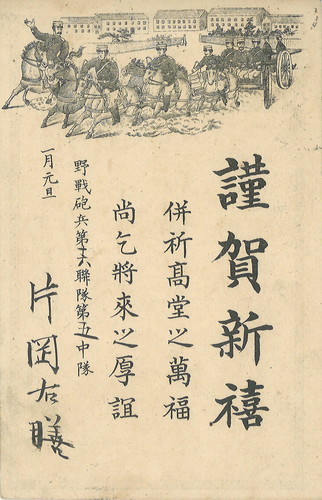 謹賀新禧
併祈髙堂之萬福
尚乞將來之厚誼
野戰砲兵第十六聯隊第五中隊
一月元旦
片岡右膳